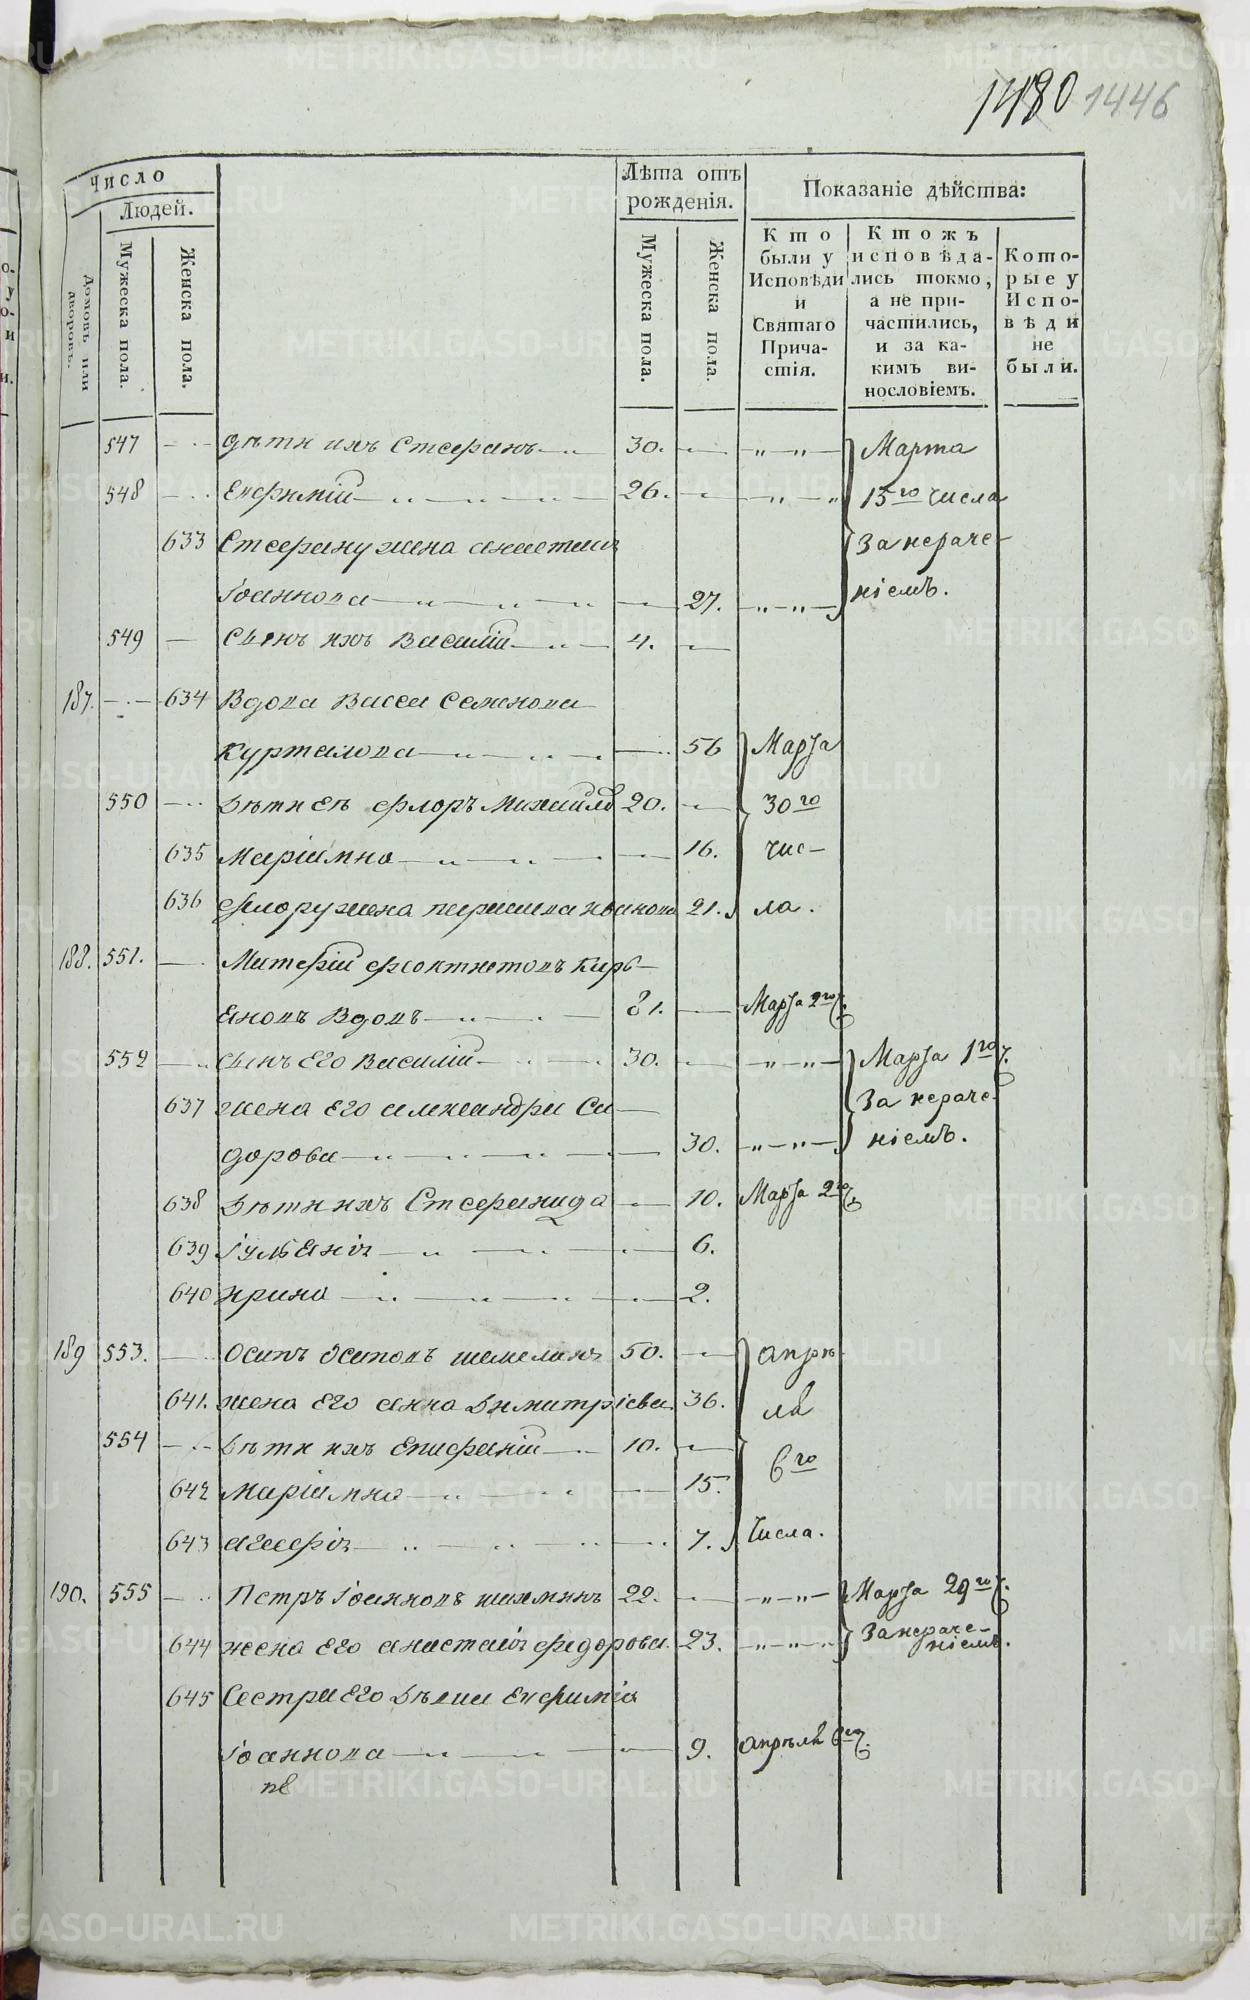 1480 1446
Число
Людей.
Домовъ или дворовъ.
Мужеска пола.
Женска пола.
Лѣта отъ рожденія.
Мужеска пола.
Женска пола.
Показаніе дѣйства:
Кто были у Исповѣди и Святаго Причастія.
Ктожъ исповѣдались токмо, а не причастились, и за какимъ винословіемъ.
Которые у Исповѣди не были.
547 дѣти ихъ Стефанъ 30. Марта
548 Ефимій 26. 15го числа
633 Стефану жена анастасія за нераче-
Іоаннова 27. ніемъ.
549 Сынъ ихъ Василій 4.
187. 634 Вдова Васса Семенова
Курталова 56 Марта
550 Дѣти Еѣ Флоръ Михайловъ 20. 30го
635 Маріамна 16. чис-
636 Флору жена Иванова 21. ла.
188. 551. Феоктистовъ Кирь-
яновъ Вдовъ 81. Марта 2го ч.
552 Сынъ Его Василій 30. Марта 1го ч.
637 жена Его александра Си- За нераче-
дорова 30. ніемъ.
638 Дѣти ихъ Стефанида 10. Марта 2го ч.
639 Іуліанія 6.
640 Ирина 2.
189 553. Осипъ Осиповъ шемелинъ 50. апрѣ-
641. жена Его анна Димитріева 36. ля
554 Дѣти ихъ Епифаній 10. 6го
642 Маріамна 15.
643 агафія 7. Числа.
190. 555 Петръ Іоанновъ 22. Марта 29го ч.
644 жена Его анастасія федорова 23. За нераче-
ніемъ.
645 Сестра Его Дѣвка Ефимія
Іоаннова 9. апрѣля 6го ч.